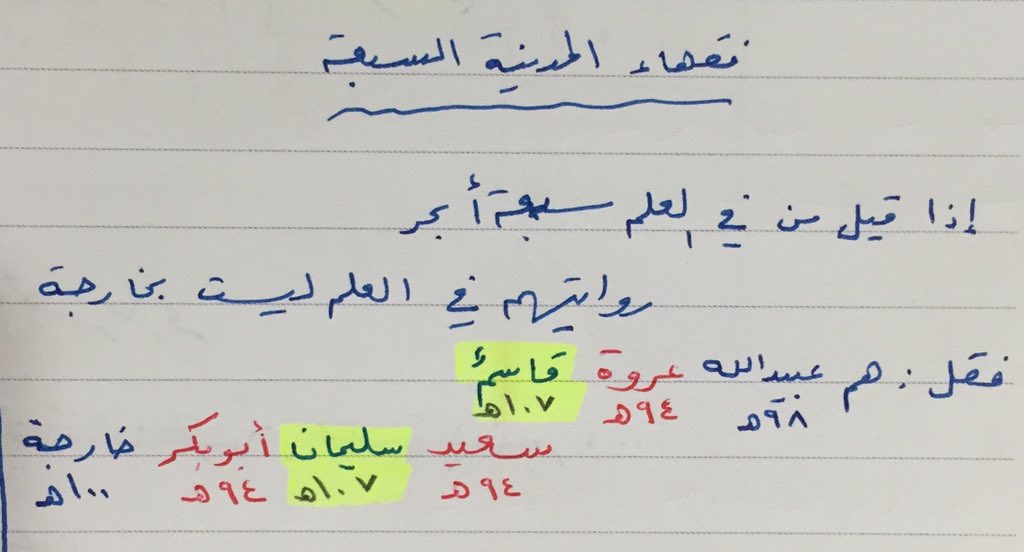 فقهاء المدينة السبعة
إذا قيل من في العلم سبعة أبحر
روايتهم في العلم ليست بخارجة
فقل : هم عبيدالله عروة قاسمٌ
٩٨هـ ٩٤هـ ١٠٧هـ
سعيد سليمان أبوبكر خارجة
٩٤هـ ١٠٧هـ ٩٤هـ ١٠٠هـ